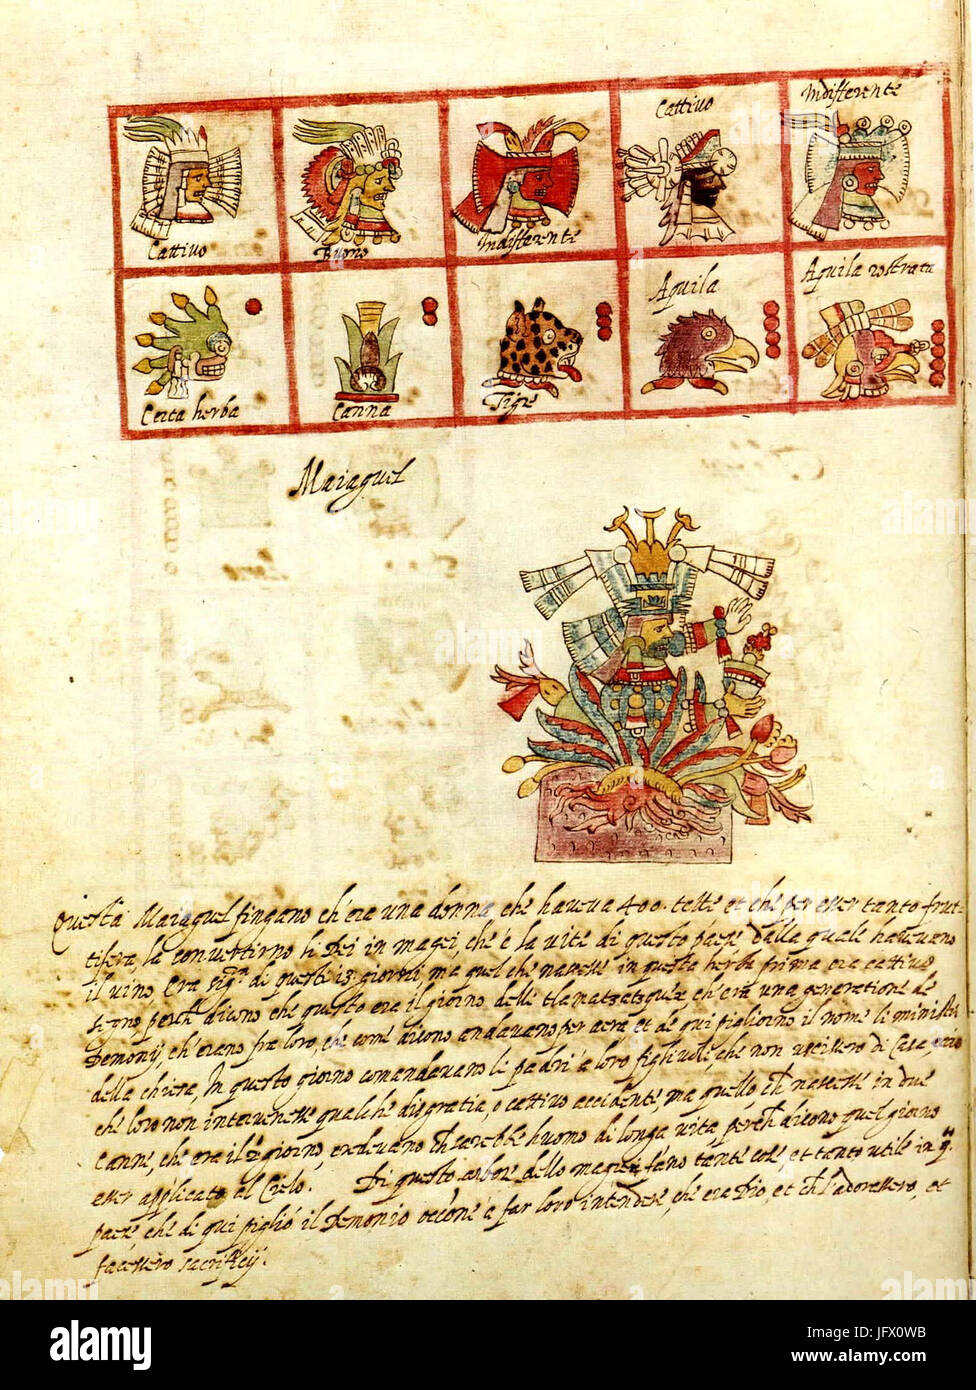 Cattivo
Indifferente
Cattivo
Buono
Indifferente
Aquila
Aquila rostrata
Certa herba
Canna
Tigre
Maiaguel
Questa Maiaguel fingano ch'era una donna, che haveva 400. tette et che per esser tanto frut-
tifera, la convertirno li Dei in magei, che è la vite di questo paese dalla quale havevano
il vino. Era di questi 13 giorni, ma quel che nascesse in questa herba prima era cattivo
segno, perch dicono che questo era il giorno delle ch'era una generatione de
Demonij, ch'erano fra loro, che come dicono andavano per aere, et de qui pigliorno il nome li ministri
della chiesa, In questo giorno comandavano li padri a loro figliuoli, che non uscissero di Casa,
che loro non intervenesse qualche disgratia, o cattivo accidente, ma quello, ch nascesse in due
Canne, che era il giorno, credevano sarebbe huomo di longa vita, perch dicono quel giorno
esser applicato al Cielo. Di questo arbore dello magei fano tante cose, et tanto utile in
paese, che di qui pigliò il Demonio à far loro intendere, che era Dio, et ch l'adorassero, et
facessero sacrificij.
alamy
alamy
Image ID: JFX0WB
www.alamy.com